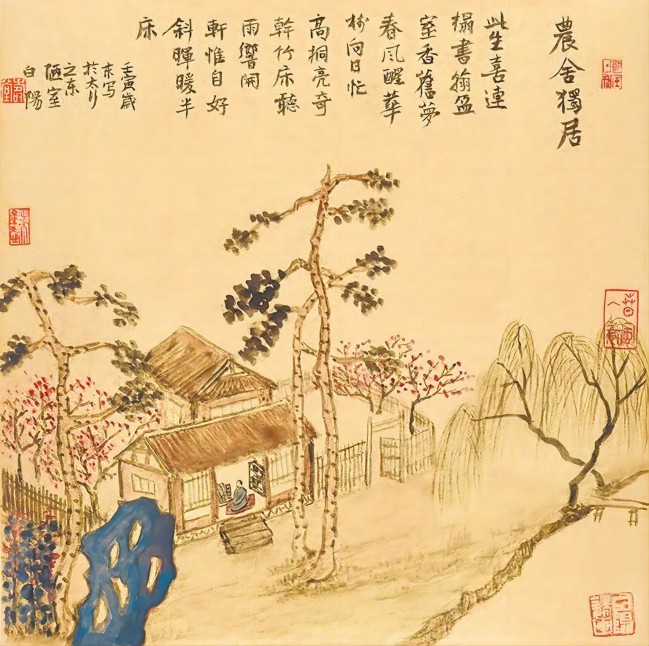 農舍獨居
此生喜連
榻書盈
室香舊夢
春风醒華
向日忙
高桐亮奇
幹竹床聽
雨響閑
軒惟自好
斜暉暖半
床
壬寅歲
末写
於太行
之东
陋室
白陽